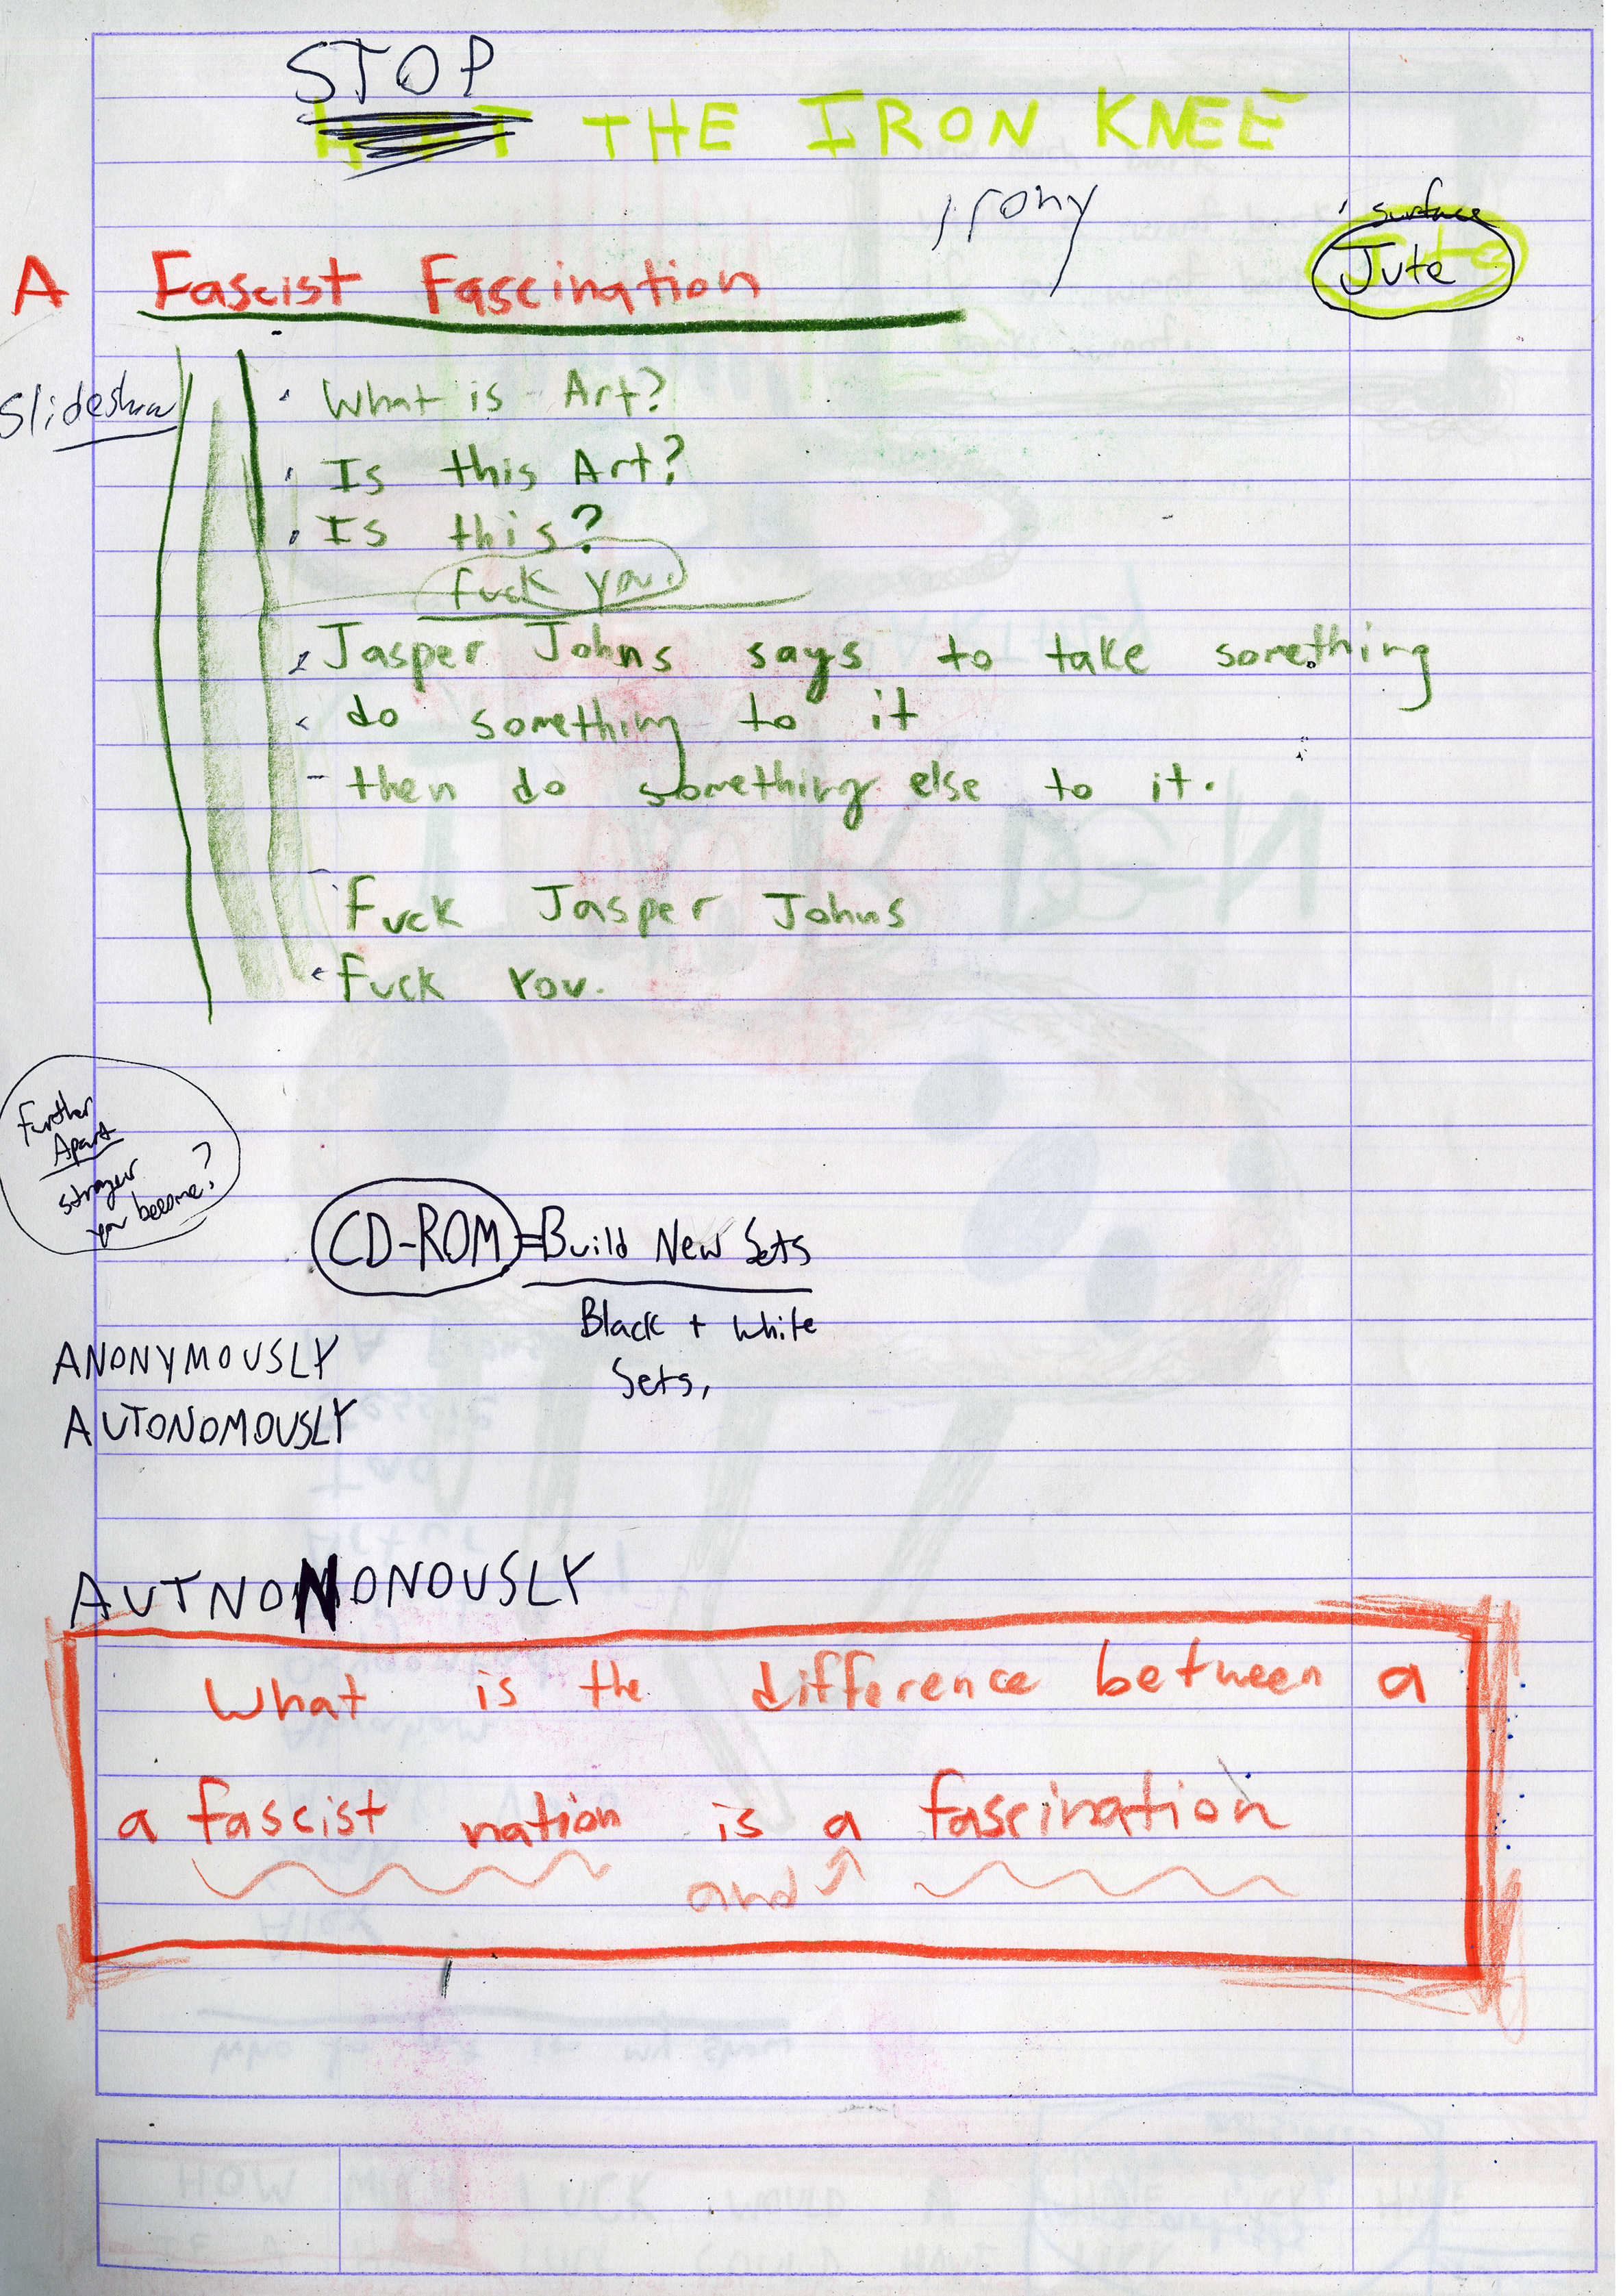 STOP
THE IRON KNEE
irony
surface
Jute
A Fascist Fascination
Slideshow
· What is Art?
· Is this Art?
· Is this?
fuck you.
· Jasper Johns says to take something
do something to it
- then do something else to it.
Fuck Jasper Johns
Fuck You.
Further
Apart
stranger
you become?
CD-ROM = Build New Sets
Black + White
Sets,
ANONYMOUSLY
AUTONOMOUSLY
AUTNONONOUSLY
What is the difference between a
a fascist nation is a fascination
and